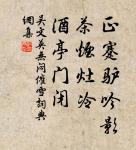 正蹇驴吟影
茶烟灶冷
酒亭门闭
吴文英无闷催雪词典
网集